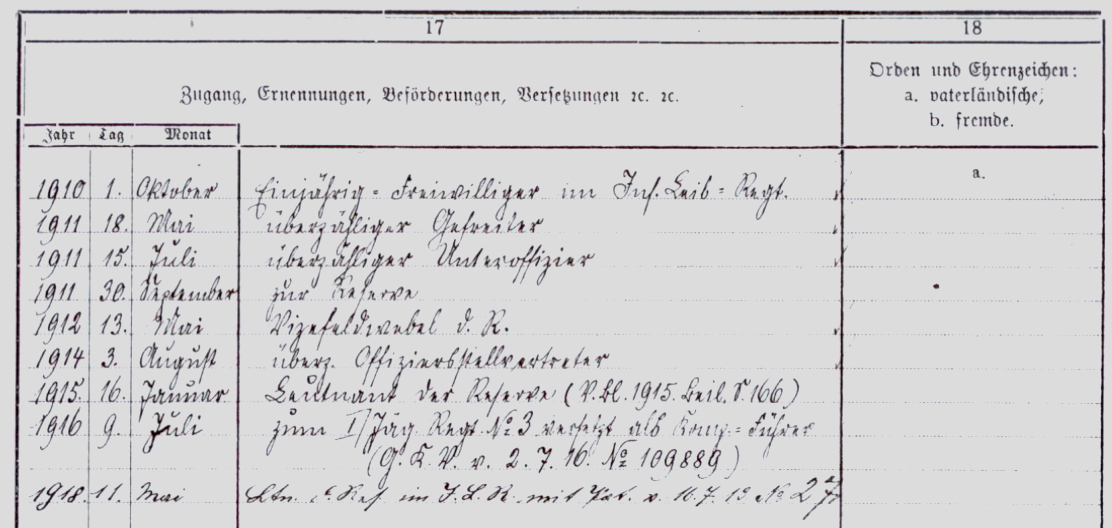 17
18
Zugang, Ernennungen, Beförderungen, Versetzungen ꝛc. ꝛc.
Orden und Ehrenzeichen:
a. vaterländische,
b. fremde.
Jahr Tag Monat
a.
1910 1. Oktober Einjährig-Freiwilliger im Inf. Leib-Regt.
1911 18. Mai überzähliger Gefreiter
1911 15. Juli überzähliger Unteroffizier
1911 30. September zur Reserve
1912 13. Mai Vizefeldwebel d. R.
1914 3. August überz. Offizierstellvertreter
1915. 16. Januar Leutnant der Reserve (V.Bl. 1915. Beil. S. 166)
1916 9. Juli zum I/Jäg Regt. No 3 versetzt als Komp.-Führer
(G. K. V. v. 2. 7. 16. No 109889)
1918. 11. Mai Ltn. d. Res. im I. L. R. mit Pat. v. 16. 7. 13 No 27